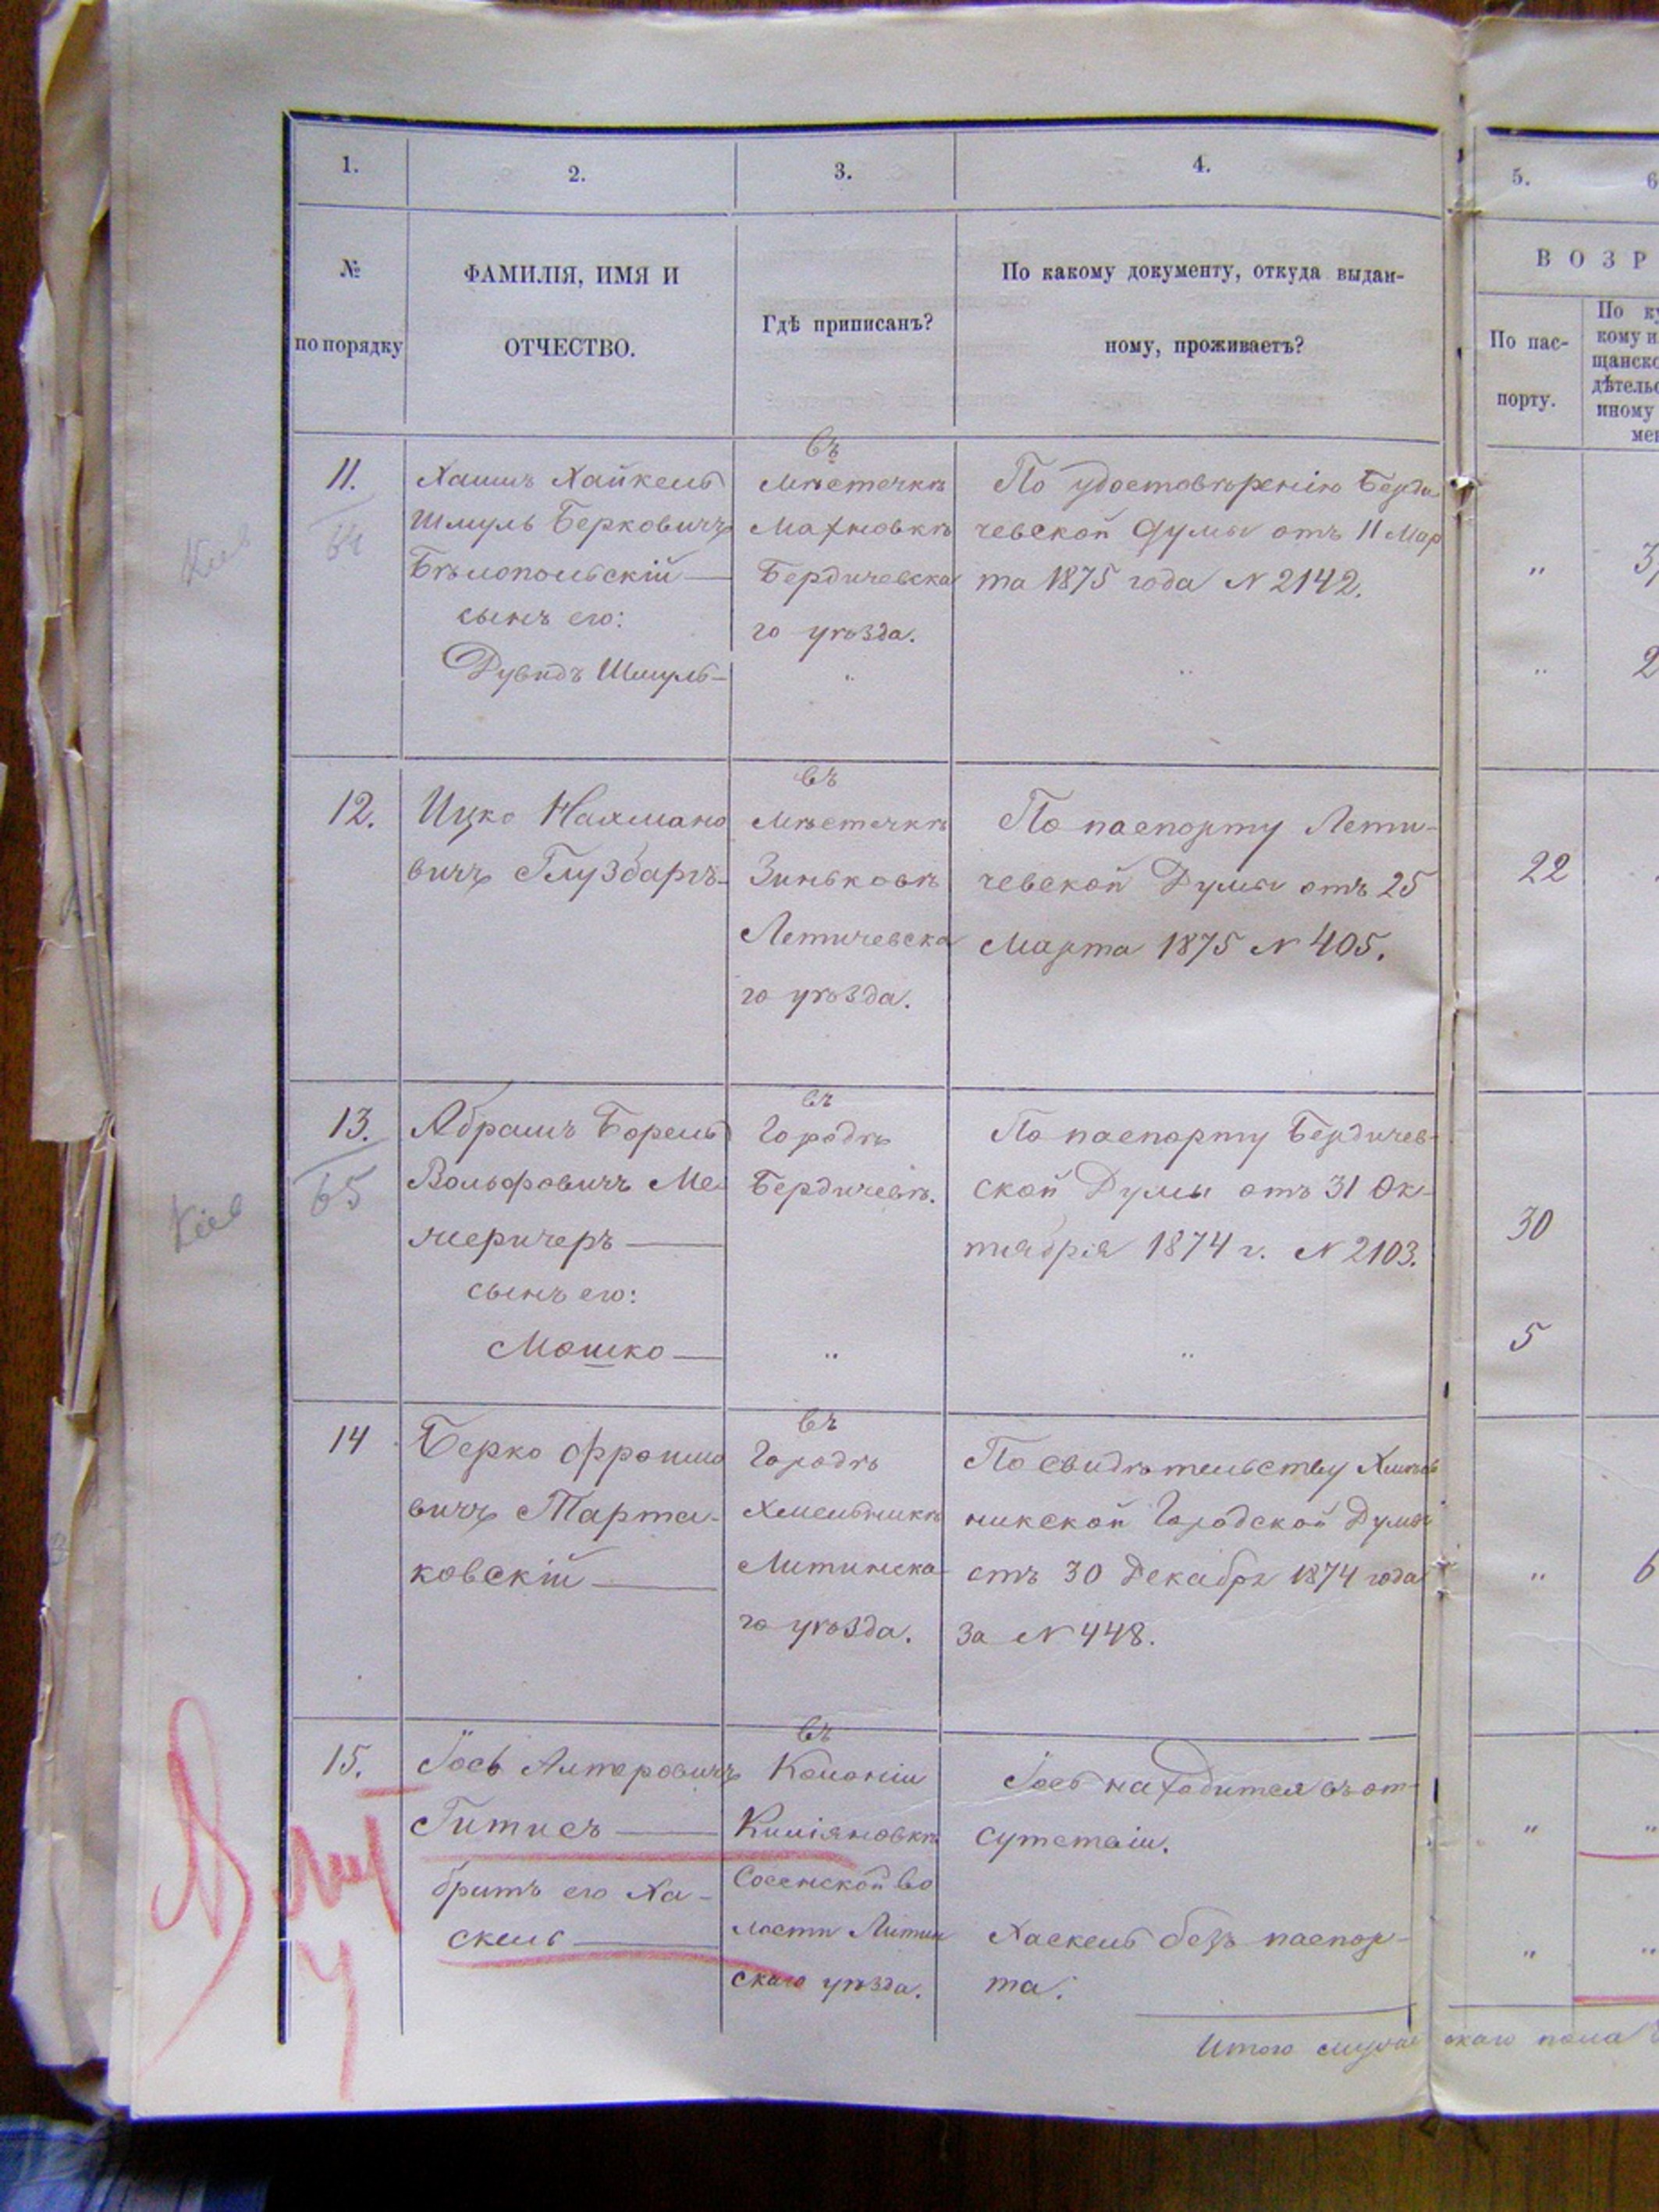 1. 2. 3. 4. 5. 6
№ по порядку
ФАМИЛІЯ, ИМЯ И
ОТЧЕСТВО.
Гдѣ приписанъ?
По какому документу, откуда выдан-
ному, проживаетъ?
ВОЗР
По пас-
порту.
По ку
кому и
щанско
дѣтельс
иному
мен
11.
64
Хаимъ Хайкель
Шмуль Берковичъ
Бѣлопольскій —
сынъ его:
Дувидъ Шмуль —
въ
Мѣстечкѣ
Махновкѣ
Бердичевска
го уѣзда.
"
По удостовѣренію Берди
чевской Думы отъ 11 Мар
та 1875 года N 2142.
"
"
"
2
12.
Ицко Нахмано
вичъ Глузбаргъ
въ
Мѣстечкѣ
Зиньковѣ
Летичевска
го уѣзда.
По паспорту Лети-
чевской Думы отъ 25
Марта 1875 N 405.
22
Кіев
13.
65
Абрамъ Борель
Вольфовичъ Ме
меричеръ —
сынъ его:
Мошко —
въ
Городѣ
Бердичевѣ.
"
По паспорту Бердичев-
ской Думы отъ 31 Ок-
тября 1874 г. N 2103.
"
30
5
14
Берко Фроимо
вичъ Тарта-
ковскій —
въ
Городѣ
Хмельникѣ
Литинска
го уѣзда.
По свидѣтельству Хмель
никской Городской Думы
отъ 30 Декабря 1874 года
за N 448.
"
6
15.
Іось Алтеровичъ
Гитисъ —
братъ его Ха-
скель —
въ
Колоніи
Кииіяновкѣ
Сосенской Во
лости Литин
скаго уѣзда.
Іось находится въ от-
сутствіи.
Хаскель безъ паспор-
та.
"
"
"
"
Итого мужескаго пола